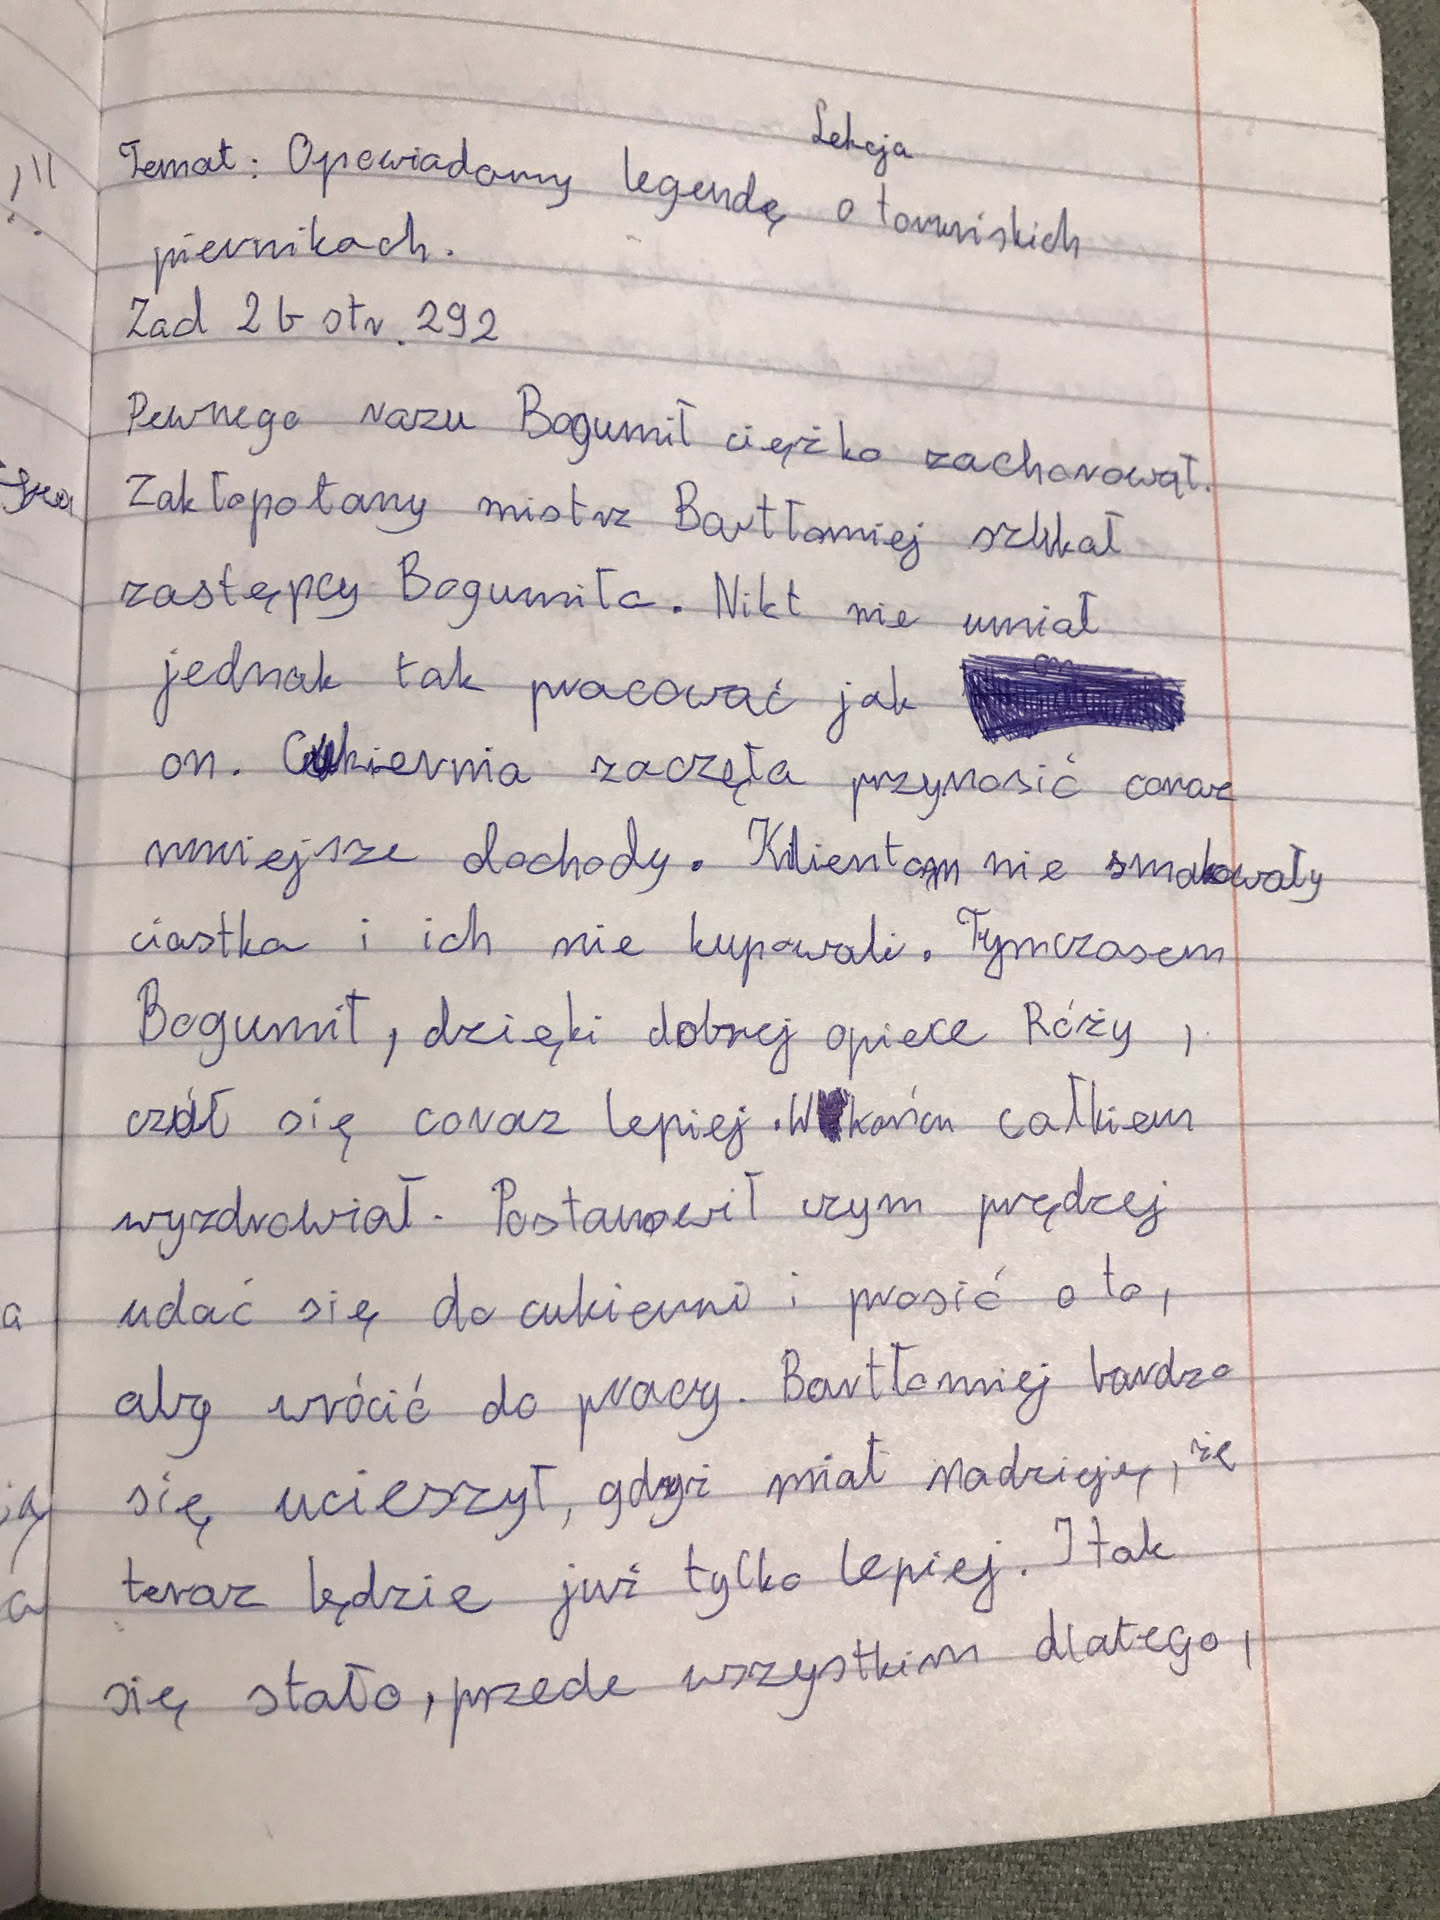 Lekcja
Temat: Opowiadamy legendę o toruńskich
piernikach.
Zad 2b str. 292
Pewnego razu Bogumił ciężko zachorował.
Zakłopotany mistrz Bartłomiej szukał
zastępcy Bogumiła. Nikt nie umiał
jednak tak pracować jak
on. Cukiernia zaczęła przynosić coraz
mniejsze dochody. Klientom nie smakowały
ciastka i ich nie kupowali. Tymczasem
Bogumił, dzięki dobrej opiece Róży,
czół się coraz lepiej. W końcu całkiem
wyzdrowiał. Postanowił czym prędzej
udać się do cukierni i prosić o to,
aby wrócić do pracy. Bartłomiej bardzo
się ucieszył, gdyż miał nadzieję, że
teraz będzie już tylko lepiej. I tak
się stało, przede wszystkim dlatego,